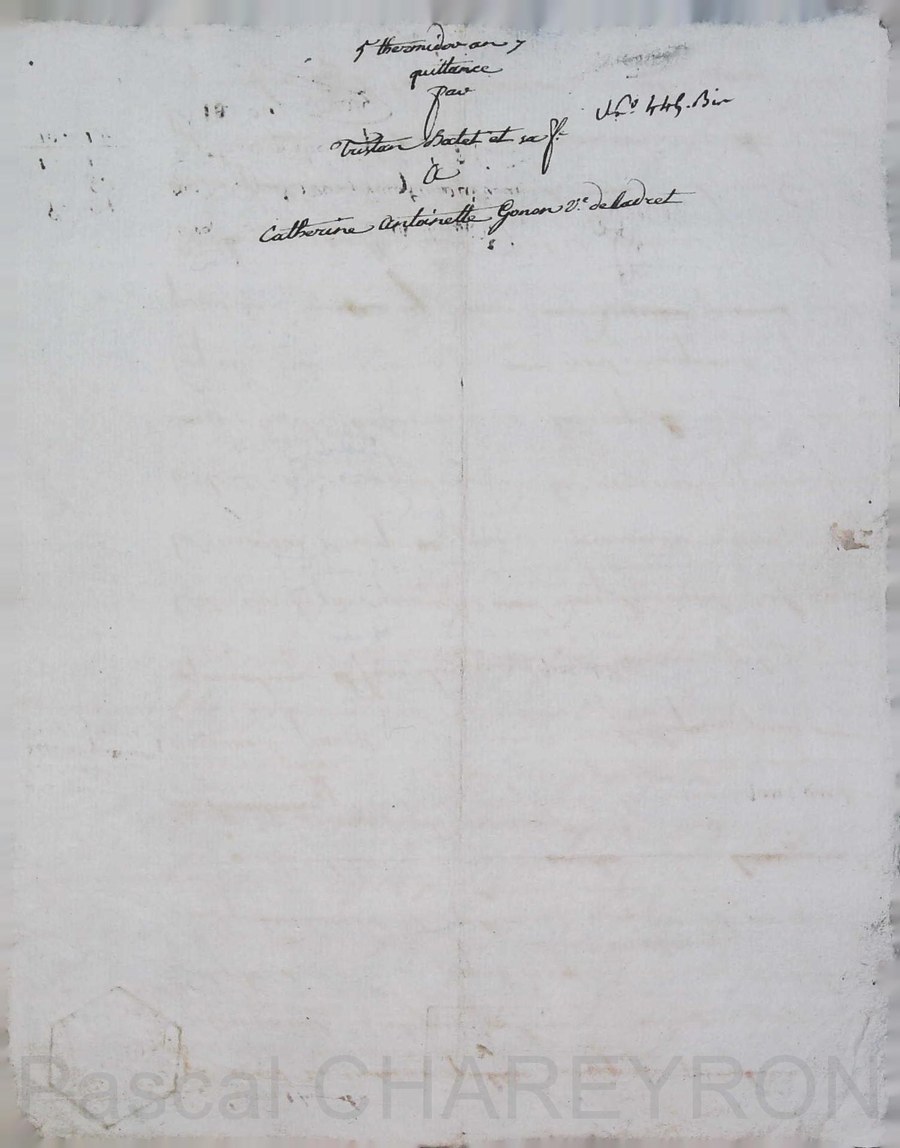 5 thermidor an 7
quittance
par
N.º 445. Bis
Tristan Batet et sa f.e
à
Catherine Antoinette Gonon V.e deladret
Pascal CHAREYRON